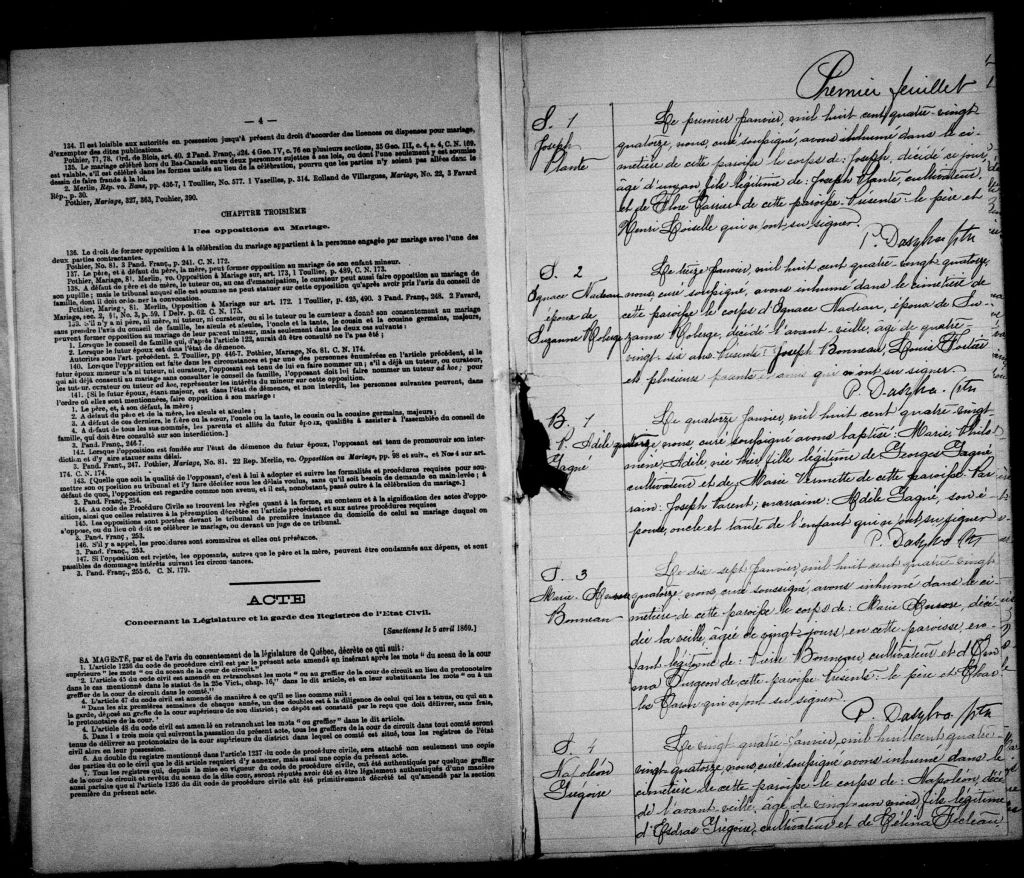 — 4 —
134. Il est loisible aux autorités en possession jusqu'à présent du droit d'accorder des licences ou dispenses pour mariage,
d'exempter des dites publications.
Pothier, 77, 78. Ord. de Blois, art. 40. 2 Pand. Franç., 24. 4 Geo. IV, c. 76 en plusieurs sections, 35 Geo. III, c. 4, s. 4, C. N. 169.
135. Le mariage célébré hors du Bas-Canada entre deux personnes sujettes à ses lois, ou dont l'une seulement y est soumise
est valable, s'il est célébré dans les formes usitées au lieu de la célébration, pourvu que les parties n'y soient pas allées dans le
dessein de faire fraude à la loi.
2. Merlin, Rép. vo. Bans, pp. 436-7, 1 Toullier, No. 577. 1 Vazeilles, p. 314. Rolland de Villargues, Mariage, No. 22, 3 Favard
Rép., p. 30.
Pothier, Mariage, 327, 363, Pouhier, 390.
CHAPITRE TROISIÈME
Des oppositions au Mariage.
136. Le droit de former opposition à la célébration du mariage appartient à la personne engagée par mariage avec l'une des
deux parties contractantes.
Pothier, No. 81. 3 Pand. Franç., p. 241. C. N. 172.
137. Le père, et à défaut du père, la mère, peut former opposition au mariage de son enfant mineur.
Pothier, Mariage, 81. Merlin, vo. Opposition à Mariage sur, art. 173, 1 Toullier, p. 489, C. N. 173.
138. A défaut de père et de mère, le tuteur ou, au cas d'émancipation, le curateur peut aussi faire opposition au mariage de
son pupille; mais le tribunal auquel elle est soumise ne peut statuer sur cette opposition qu'après avoir pris l'avis du conseil de
famille, dont il doit ordonner la convocation.
Pothier, Mariage, 81, Merlin, Opposition à Mariage sur art. 172. 1 Toullier, p. 425, 490. 3 Pand. Franç., 248. 2 Favard,
Mariage, sec. 2, § 1, No. 3, p. 59. 1 Delv. p. 62. C. N. 175.
139. S'il n'y a ni père, ni mère, ni tuteur, ni curateur, ou si le tuteur ou le curateur a donné son consentement au mariage
sans prendre l'avis du conseil de famille, les aïeuls et aïeules, l'oncle et la tante, le cousin et la cousine germains, majeurs,
peuvent former opposition au mariage de leur parent mineur, mais seulement dans les deux cas suivants:
1. Lorsque le conseil de famille qui, d'après l'article 122, aurait dû être consulté ne l'a pas été;
2. Lorsque le futur époux est dans l'état de démence.
Autorités sous l'art. précédent. 2. Toullier, pp. 446-7. Pothier, Mariage, No. 81. C. N. 174.
140. Lorsque l'opposition est faite dans les circonstances et par une des personnes énumérées en l'article précédent, si le
futur époux mineur n'a ni tuteur, ni curateur, l'opposant est tenu de lui en faire nommer un; s'il a déjà un tuteur, ou curateur,
qui ait déjà consenti au mariage sans consulter le conseil de famille, l'opposant doit lui faire nommer un tuteur ad hoc; pour
les tuteur, curateur ou tuteur ad hoc, représenter les intérêts du mineur sur cette opposition.
141. [Si le futur époux, étant majeur, est dans l'état de démence, et non interdit, les personnes suivantes peuvent, dans
l'ordre où elles sont mentionnées, faire opposition à son mariage:
1. Le père, et, à son défaut, la mère;
2. A défaut du père et de la mère, les aïeuls et aïeules;
3. A défaut de ces derniers, le frère ou la sœur, l'oncle ou la tante, le cousin ou la cousine germains, majeurs;
4. A défaut de tous les sus-nommés, les parents et alliés du futur époux, qualifiés à assister à l'assemblée du conseil de
famille, qui doit être consulté sur son interdiction.]
3. Pand. Franç., 246-7.
142. Lorsque l'opposition est fondée sur l'état de démence du futur époux, l'opposant est tenu de promouvoir son inter-
diction et d'y faire statuer sans délai.
3. Pand. Franç., 247. Pothier, Mariage, No. 81. 22 Rep. Merlin, vo. Opposition au Mariage, pp. 98 et suiv., et No 4 sur art.
174. C. N. 174.
143. [Quelle que soit la qualité de l'opposant, c'est à lui à adopter et suivre les formalités et procédures requises pour sou-
mettre son opposition au tribunal et l'y faire décider sous les délais voulus, sans qu'il soit besoin de demande en main-levée; à
défaut de quoi, l'opposition est regardée comme non avenu, et il est, nonobstant, passé outre à la célébration du mariage.]
3. Pand. Franç., 254.
144. Au code de Procédure Civile se trouvent les règles quant à la forme, au contenu et à la signification des actes d'oppo-
sition, ainsi que celles relatives à la péremption décrétée en l'article précédent et aux autres procédures requises
145. Les oppositions sont portées devant le tribunal de première instance du domicile de celui au mariage duquel on
s'oppose, ou du lieu où doit se célébrer le mariage, ou devant un juge de ce tribunal.
3. Pand. Franç, 253.
146. S'il y a appel, les procédures sont sommaires et elles ont préséance.
3. Pand. Franç., 253.
147. Si l'opposition est rejetée, les opposants, autres que le père et la mère, peuvent être condamnés aux dépens, et sont
passibles de dommages intérêts suivant les circonstances.
3. Pand. Franç., 255-6. C. N. 179.
ACTE
Concernant la Législature et la garde des Registres de l'Etat Civil.
[Sanctionné le 5 avril 1869.]
SA MAGESTÉ, par et de l'avis du consentement de la législature de Québec, décrète ce qui suit:
1. L'article 1236 du code de procédure civile est par le présent acte amendé en insérant après les mots "du sceau de la cour
supérieure" les mots "ou du sceau de la cour de circuit."
"2. L'article 45 du code civil est amendé en retranchant les mots "ou au greffier de la cour de circuit au lieu du protonotaire
dans le cas mentionné dans le statut de la 25e Vict, chap. 16," dans le dit article, et en leur substituants les mots "ou à un
greffier de la cour de circuit dans le comté."
4. L'article 47 du code civil est amendé de manière à ce qu'il se lise comme suit:
"Dans les six premières semaines de chaque année, un des doubles est à la diligence de celui qui les a tenus, ou qui en a
la garde, déposé au greffe de la cour supérieure de son district; ce dépôt est constaté par le reçu que doit délivrer, sans frais,
le protonotaire de la cour."
4. L'article 48 du code civil est amendé en retranchant les mots "ou greffier" dans le dit article.
5. Dans les trois mois qui suivront la passation du présent acte, tous les greffiers de la cour de circuit dans tout comté seront
tenus de délivrer au protonotaire de la cour supérieure du district dans lequel ce comté est situé, tous les registres de l'état
civil alors en leur possession.
6. Au double du registre mentionné dans l'article 1237 du code de procédure civile, sera attaché non seulement une copie
des parties du code civil que le dit article requiert d'y annexer, mais aussi une copie du présent acte.
7. Tous les registres qui, depuis la mise en vigueur du code de procédure civile, ont été authentiqués par quelque greffier
de la cour de circuit et revêtus du sceau de la dite cour, seront réputés avoir été et être légalement authentiqués d'une manière
aussi parfaite que si l'article 1236 du dit code de procédure civile eût été primitivement décrété tel qu'amendé par la section
première du présent acte.
Premier feuillet
S. 1
Joseph
Plante
Le premier Janvier, mil huit cent quatre-vingt
quatorze, nous, curé soussigné, avons inhumé dans le ci-
metière de cette paroisse le corps de: Joseph, décédé ce jour,
âgé d'un an, fils légitime de: Joseph Plante, cultivateur,
et de Flore Carrier de cette paroisse. Présents: le père et
Henri Loiselle qui n'ont su signer.
P. Dasylva ptre
S. 2
Ignace Nadeau
époux de
Suzanne Roberge
Le treize Janvier, mil huit cent quatre-vingt quatorze,
nous, curé soussigné, avons inhumé dans le cimetière de
cette paroisse le corps d'Ignace Nadeau, époux de Su-
zanne Roberge, décédé l'avant-veille, âgé de quatre-
vingt-six ans. Présents: Joseph Bonneau, Louis
et plusieurs parents et amis qui n'ont su signer.
P. Dasylva ptre
B. 1
M. Adèle
Gagné
Le quatorze Janvier, mil huit cent quatre-vingt
quatorze nous curé soussigné avons baptisé: Marie, Philo-
mène, Adèle, née hier, fille légitime de Georges Gagné
cultivateur et de Marie Vermette de cette paroisse. Par-
rain: Joseph Parent; marraine: Adèle Gagné, son é-
pouse, oncle et tante de l'enfant qui n'ont su signer
P. Dasylva ptre
S. 3
Marie
Bonneau
Le dix-sept Janvier, mil huit cent quatre-vingt
quatorze, nous, curé soussigné, avons inhumé dans le ci-
metière de cette paroisse le corps de: Marie, décé-
dée la veille, âgée de vingt jours, en cette paroisse, en-
fant légitime de: Bonneau, cultivateur et d'Em-
ma Turgeon de cette paroisse. Présents: le père et Char-
les Caron qui n'ont su signer
P. Dasylva ptre
S. 4
Napoléon
Grégoire
Le vingt-quatre Janvier, mil huit cent quatre-
vingt-quatorze, nous, curé soussigné avons inhumé dans le
cimetière de cette paroisse le corps de: Napoléon, décédé
de l'avant-veille, âgé de vingt-un mois, fils légitime
d'Esdras Grégoire, cultivateur et de Célina Fecteau,